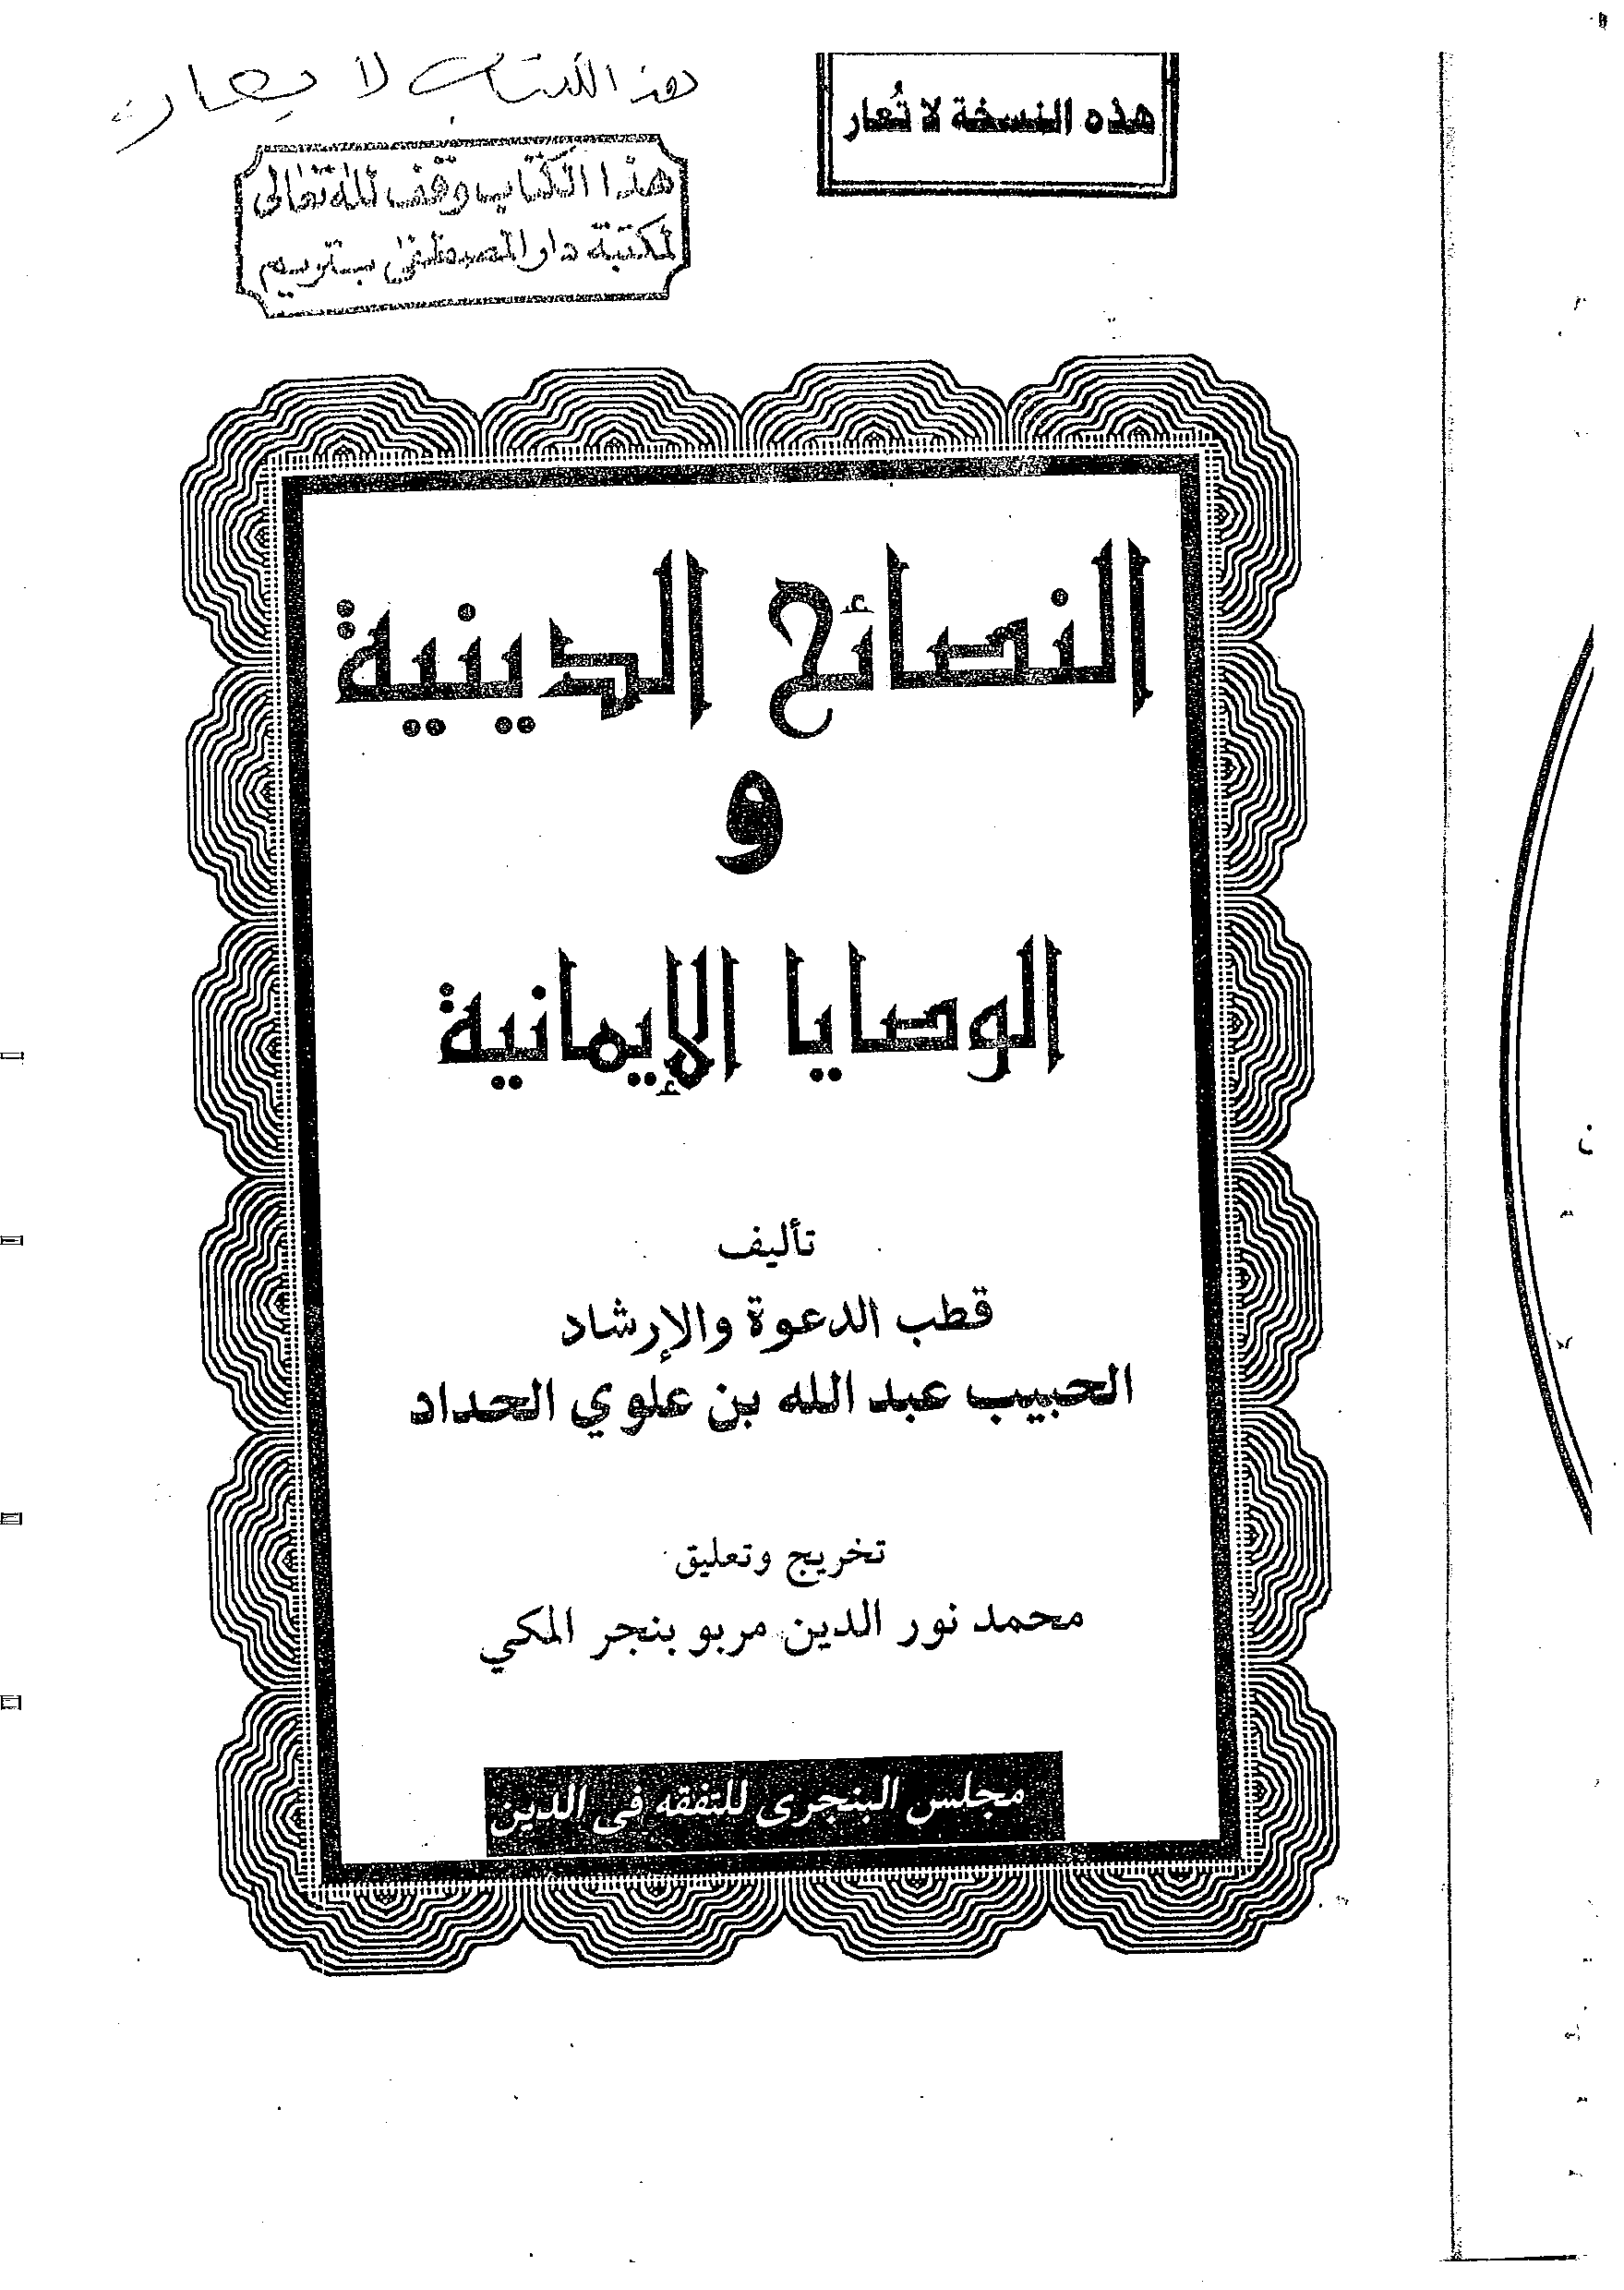 هذه النسخة لا تُعار
هذا الكتاب لا يعار
هذا الكتاب وقف لله تعالى
لمكتبة دار المصطفى بتريم
النصائح الدينية
و
الوصايا الإيمانية
تأليف
قطب الدعوة والإرشاد
الحبيب عبد الله بن علوي الحداد
تخريج وتعليق
محمد نور الدين مربو بنجر المكي
مجلس البنجري للتفقه في الدين